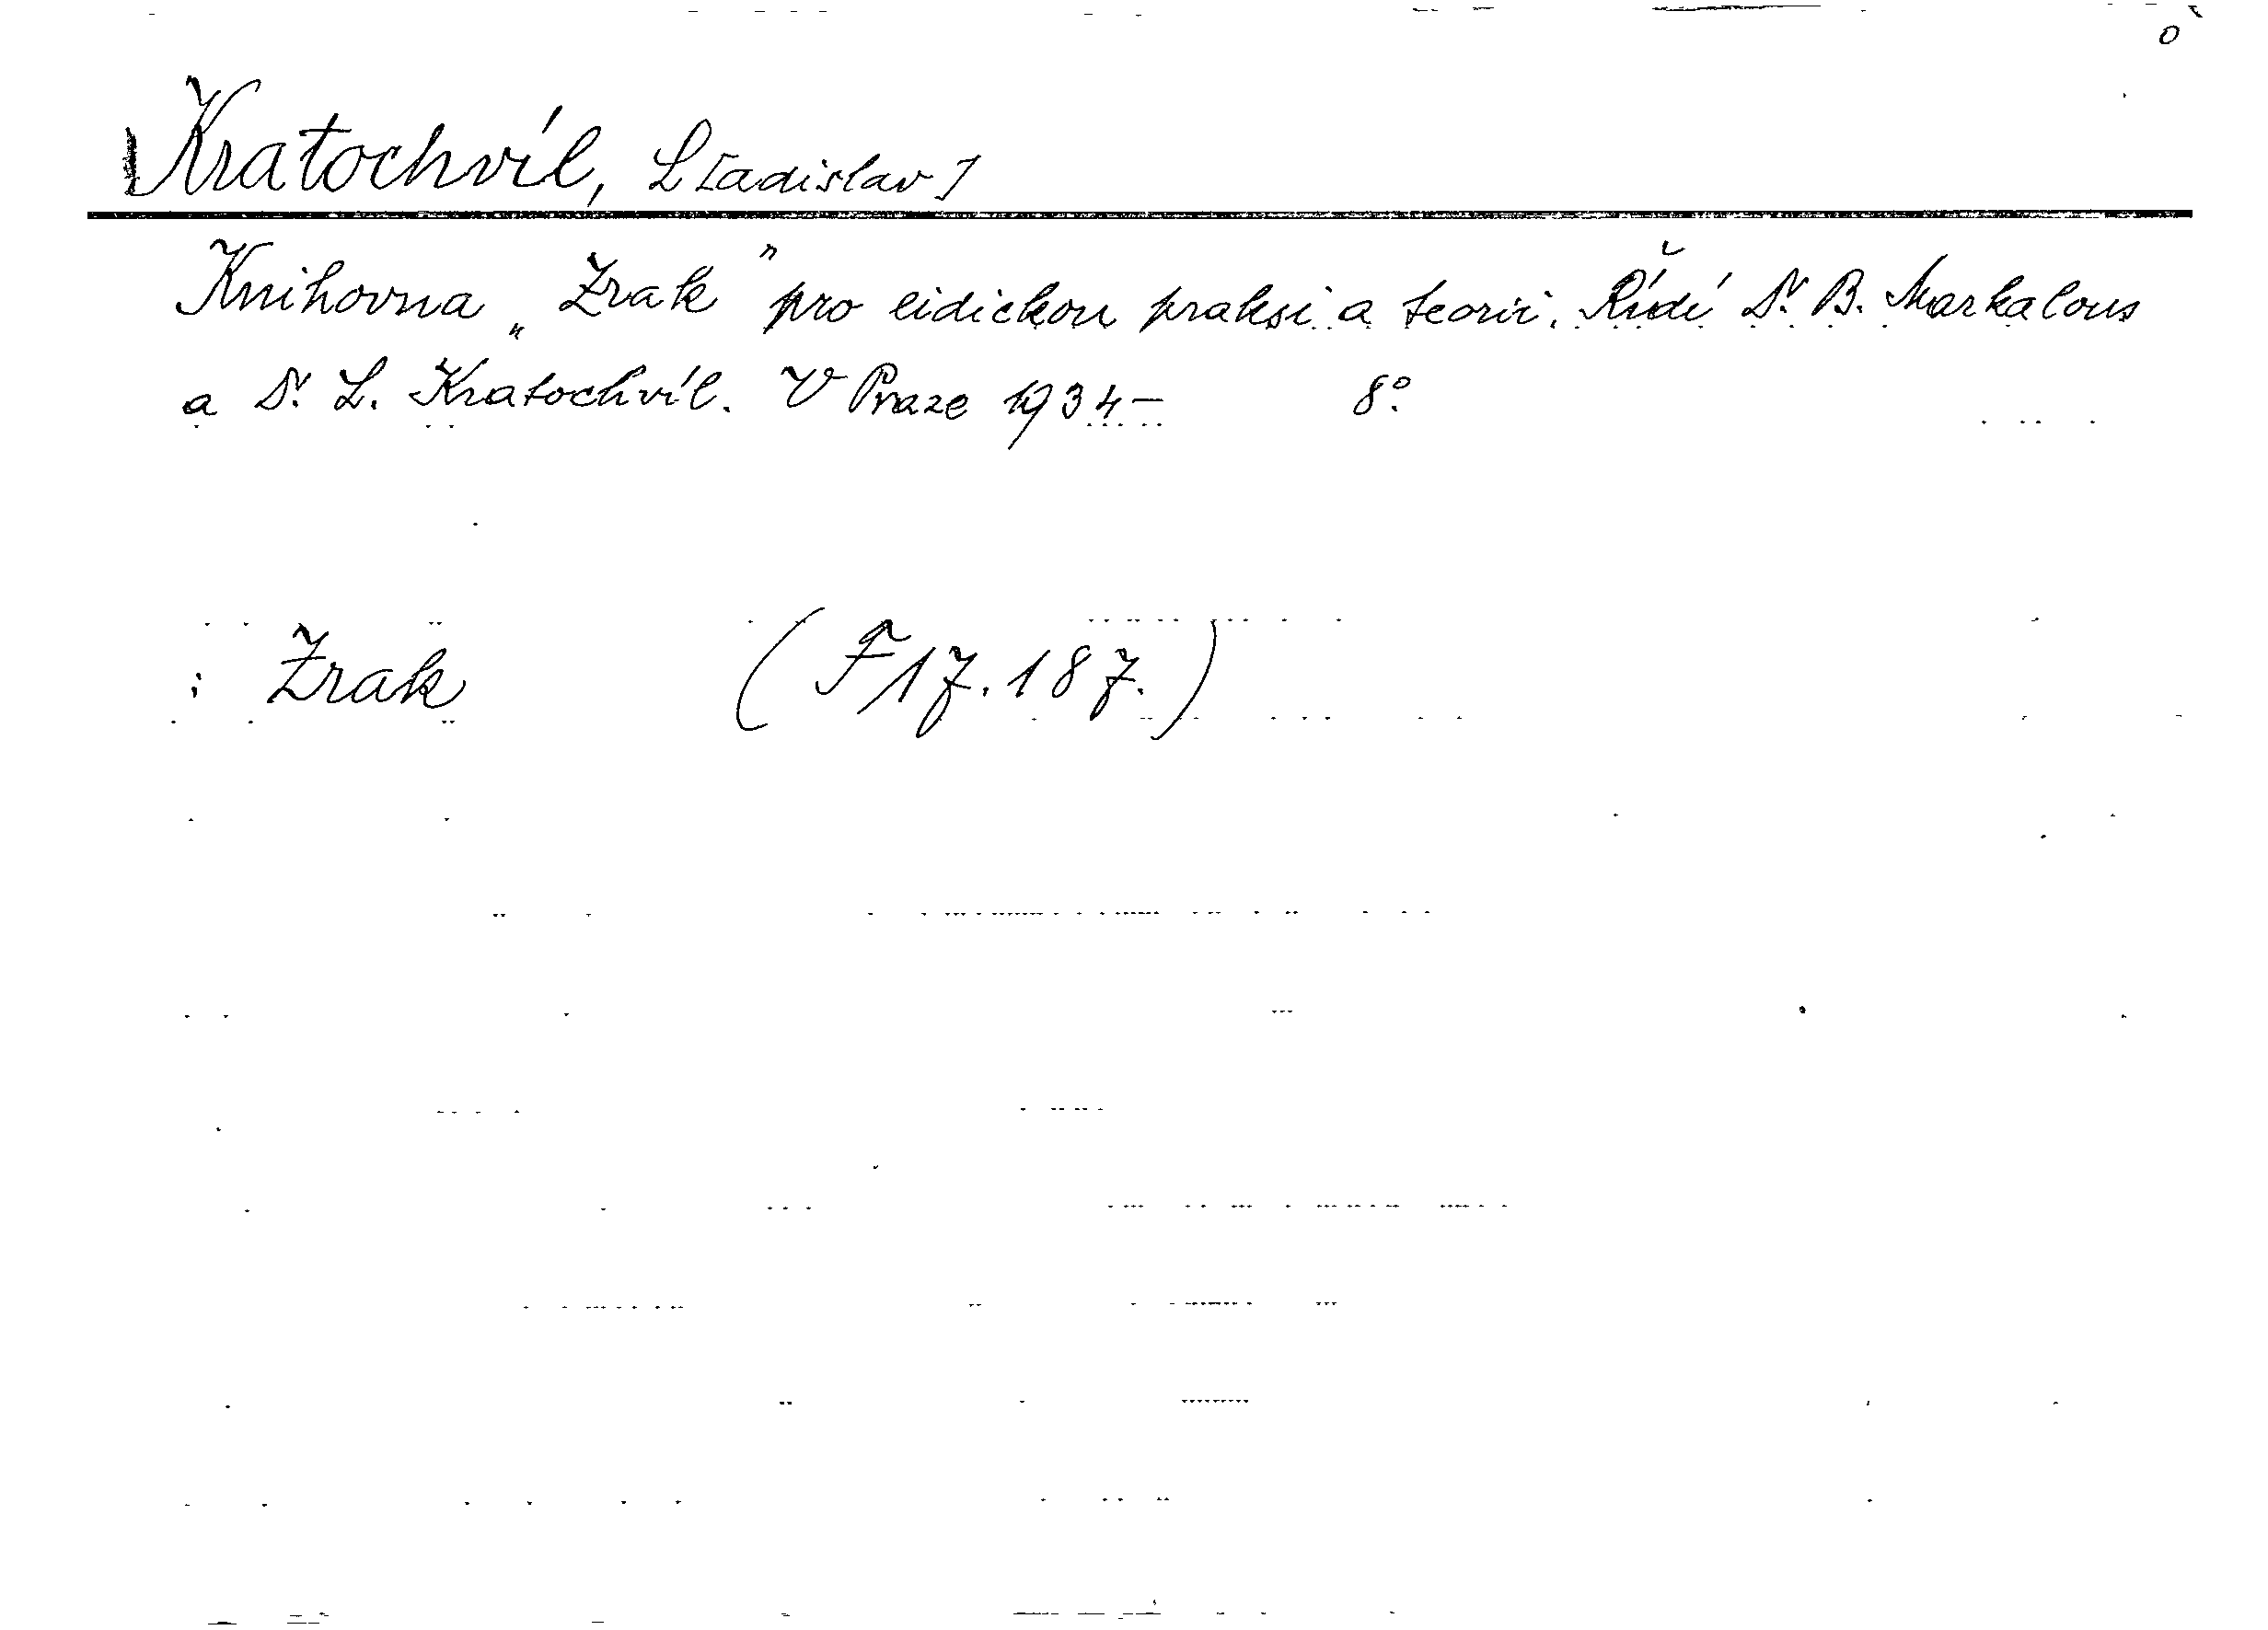 Kratochvíl, L[adislav]
Knihovna „Zrak" pro eidickou praksi a teorii. Řídí Dr. B. Markalous
a Dr. L. Kratochvíl. V Praze 1934– 8°.
: Zrak (F 17.187.)